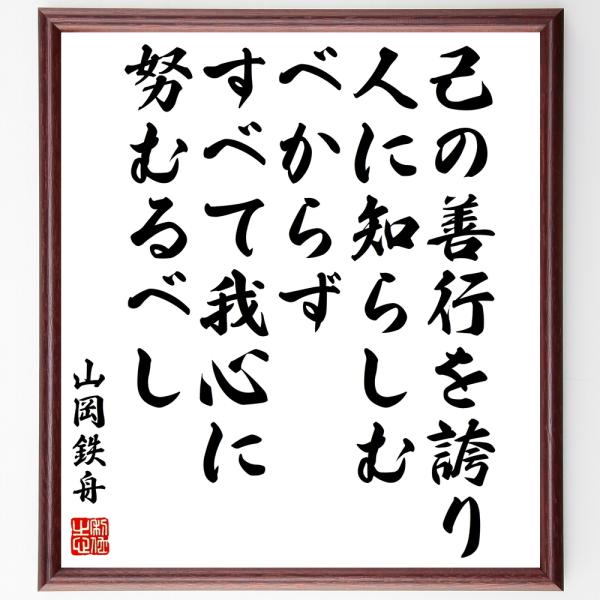 己の善行を誇り
人に知らしむ
べからず
すべて我心に
努むるべし
山岡鉄舟